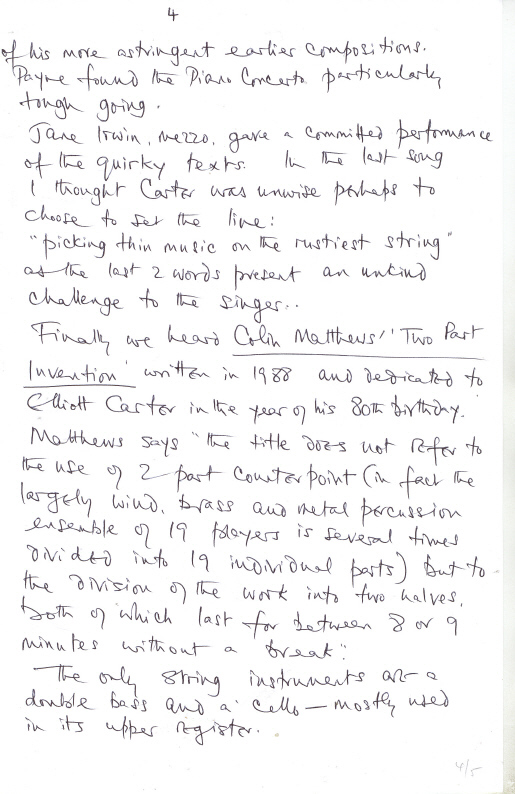 4
of his more astringent earlier compositions.
Payne found the Piano Concerto particularly
tough going.
Jane Irwin, mezzo, gave a committed performance
of the quirky texts. In the last song
I thought Carter was unwise perhaps to
choose to set the line:
"picking thin music on the rustiest string"
as the last 2 words present an unkind
challenge to the singer..
Finally we heard Colin Matthews' 'Two Part
Invention' written in 1988 and dedicated to
Elliott Carter in the year of his 80th birthday.
Matthews says "the title does not refer to
the use of 2 part counterpoint (in fact the
largely wind, brass and metal percussion
ensemble of 19 players is several times
divided into 19 individual parts) but to
the division of the work into two halves,
both of which last for between 8 or 9
minutes without a break".
The only string instruments are a
double bass and a cello – mostly used
in its upper register.
4/5